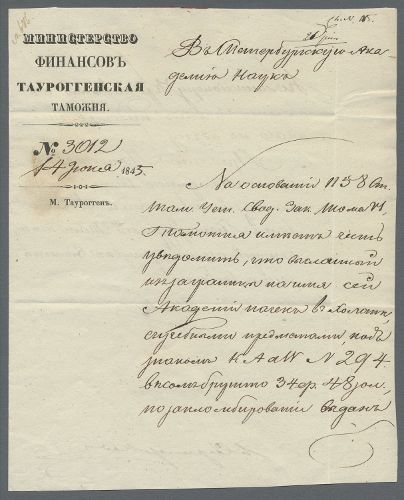 МИНИСТЕРСТВО
ФИНАНСОВЪ
ТАУРОГГЕНСКАЯ
ТАМОЖНЯ.
№ 3012
14 Июня 1845.
М. Таурогенъ.
Въ Петербургскую Ака-
демію Наукъ
На основаніи 1158 Ст.
Там. Уст. Свод. Зак. тома VI,
Таможня имѣетъ честь
увѣдомить, что высланный
изъ заграницы на имя сей
Академіи пачекъ въ холстинѣ,
съ учебными предметами, подъ
знакомъ K A d W N 294
вѣсомъ брутто 34 фр. 48 зол.
по запломбированіи выданъ